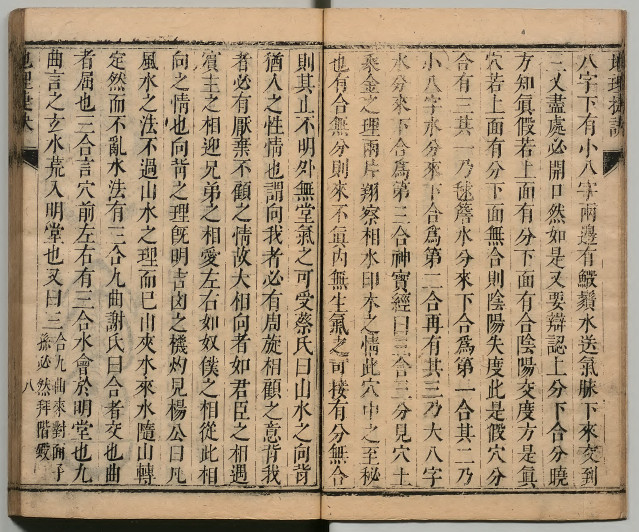 八字下有小八字兩邊有鰕鬚水送氣脉下來交到
三丈盡處必開口然如是又要辯認上分下合分曉
方知眞假若上面有分下面有合陰陽交度方是眞
穴若上面有分下面無合則陰陽失度此是假穴分
合有三其一乃毬簷水分來下合爲第一合其二乃
小八字水分來下合爲第二合再有其三乃大八字
水分來下合爲第三合神寶經曰三合三分見穴土
乘金之理兩片翔察相水印木之情此穴中之至秘
也有合無分則來不眞內無生氣之可接有分無合
則其止不明外無堂氣之可受蔡氏曰山水之向背
猶人之性情也謂向我者必有周旋相顧之意背我
者必有厭棄不顧之情故大相向者如君臣之相遇
賔主之相迎兄弟之相愛左右如奴僕之相從此相
向之情也向背之理旣明吉凶之機灼見楊公曰凡
風水之法不過山水之理而巳山來水來水隨山轉
定然而不亂水法有三合九曲謝氏曰合者交也曲
者屈也三合言穴前左右有三合水會於明堂也九
曲言之玄水㐬入明堂也又曰三
合九曲來對面子
孫必然拜階殿
八